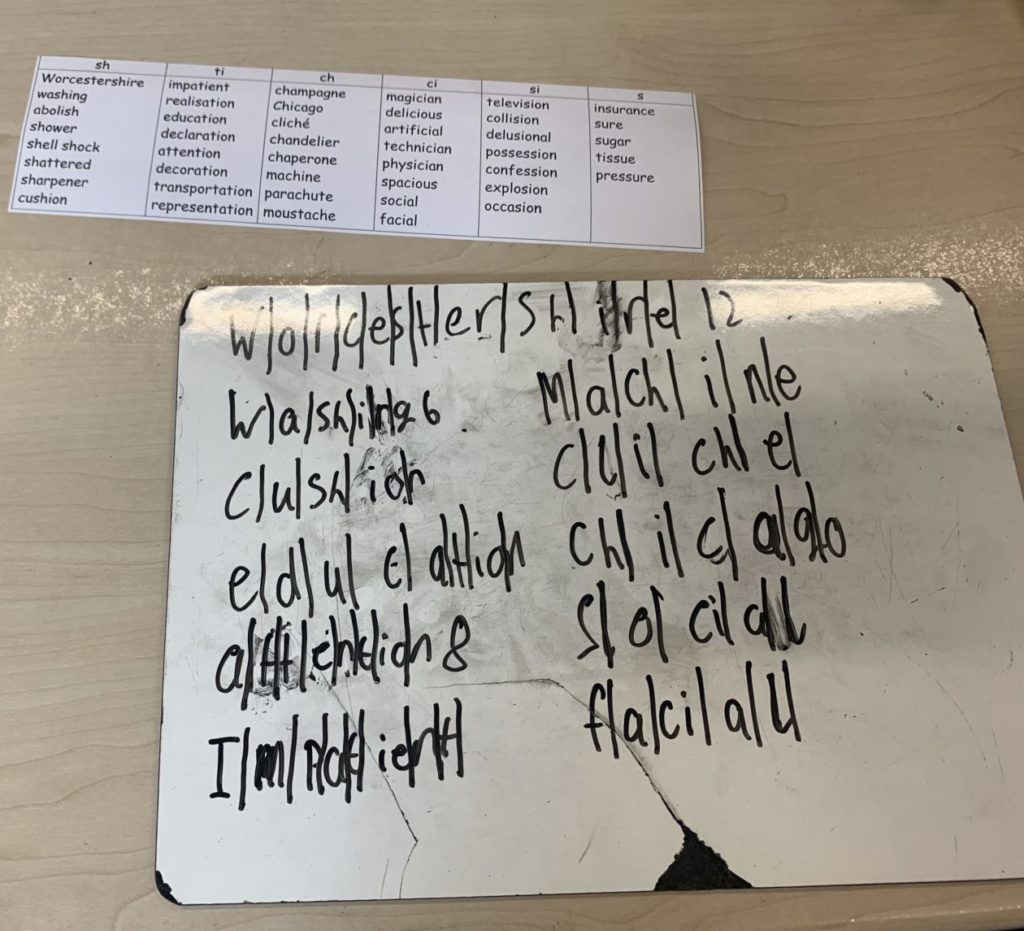 sh ti ch ci si s
Worcestershire impatient champagne magician television insurance
washing realisation Chicago delicious collision sure
abolish education cliché artificial delusional sugar
shower declaration chandelier technician possession tissue
shell shock attention chaperone physician confession pressure
shattered decoration machine spacious explosion
sharpener transportation parachute social occasion
cushion representation moustache facial
W/o/r/c/e/s/t/er/sh/i/r/e/ 12
W/a/sh/i/n/g 6
C/u/sh/io/n
e/d/u/c/a/t/io/n
a/t/t/e/n/t/io/n 8
I/m/p/a/t/ie/n/t/
M/a/ch/i/n/e
C/l/i/ch/e/
Ch/i/c/a/g/o
S/o/ci/a/l
f/a/ci/a/l/